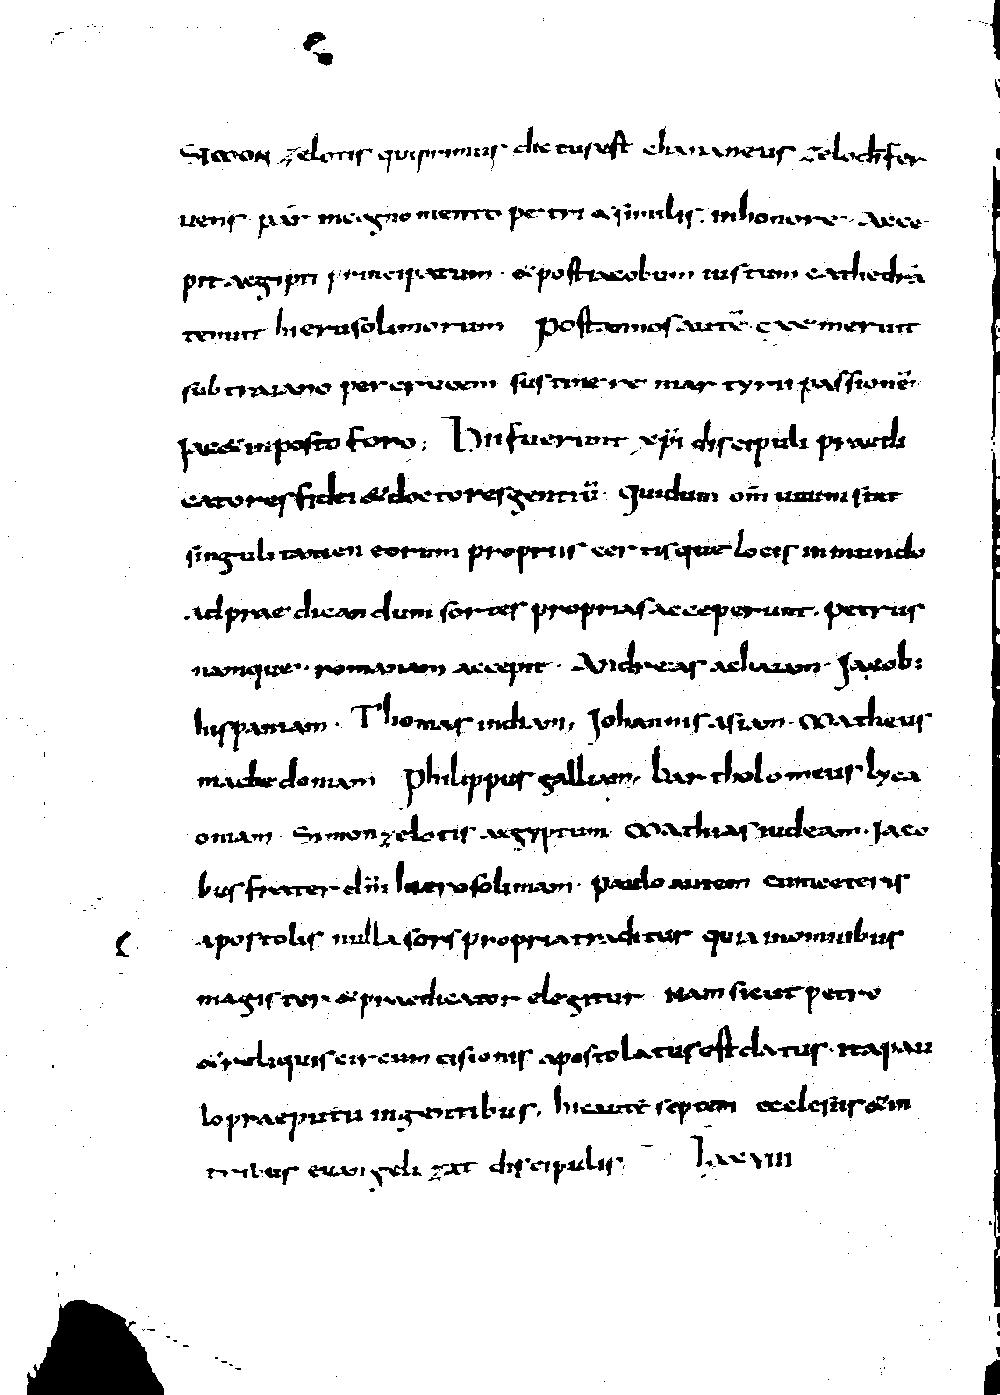 SIMON zelotis qui primus dictus est chananeus zeloch fer
uens par in cognomento petri & similis in honore Acce
pit aegipti principatum & post iacobum iustum cathedrā
tenuit hierusolimorum Post annos autē CXX meruit
sub traiano per crucem sustinere martyrii passionē
Iac& in posforo foro; Hii fuerunt xp̄i discipuli praedi
catores fidei & doctores gentiū Qui dum om̄ unum sint
singuli tamen eorum propriis certisque locis in mundo
ad praedicandum sortes proprias acceperunt. petrus
namque romanam accepit. Andreas achaiam Iacob;
hispaniam. Thomas indiam, Iohannis asiam. Matheus
machedoniam Philippus galliam, bartholomeus lyca
oniam. Simon zelotis aegyptum Mathias iudeam. Iaco
bus frater dn̄i hierosolimam. paulo autem cum ceteris
apostolis nulla sors propria traditur quia in omnibus
magister & praedicator elegitur Nam sicut petro
& reliquis circumcisionis apostolatus est datus. ita pau
lo praeputii in gentibus, hic autē septem ecclesiis & in
tribus euangelizat discipulis